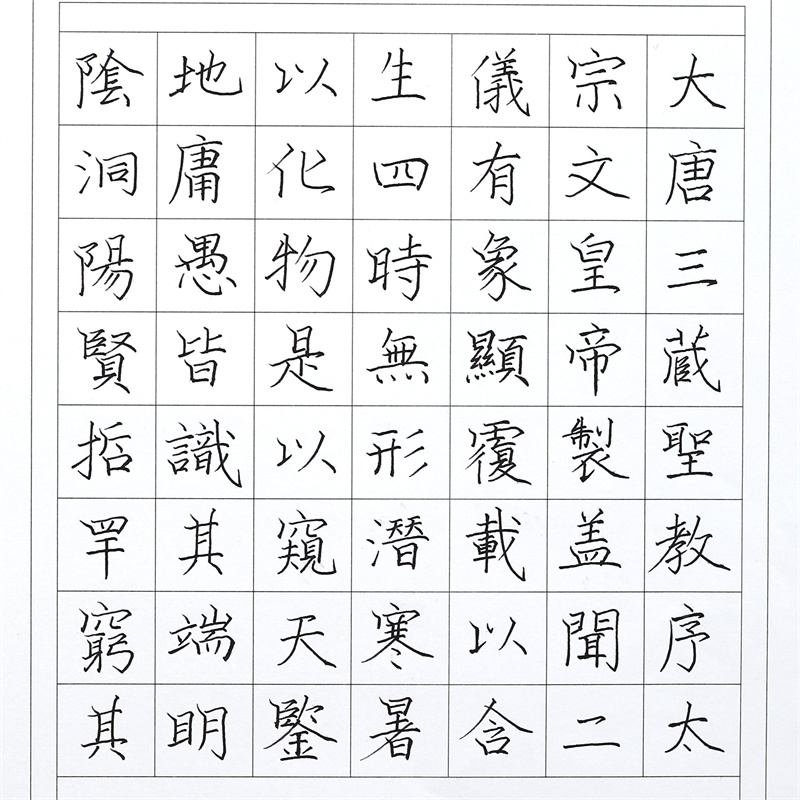 大唐三蔵聖教序太
宗文皇帝製盖聞二
儀有象顯覆載以含
生四時無形潛寒暑
以化物是以窺天鑒
地庸愚皆識其端明
陰洞陽賢哲罕窮其